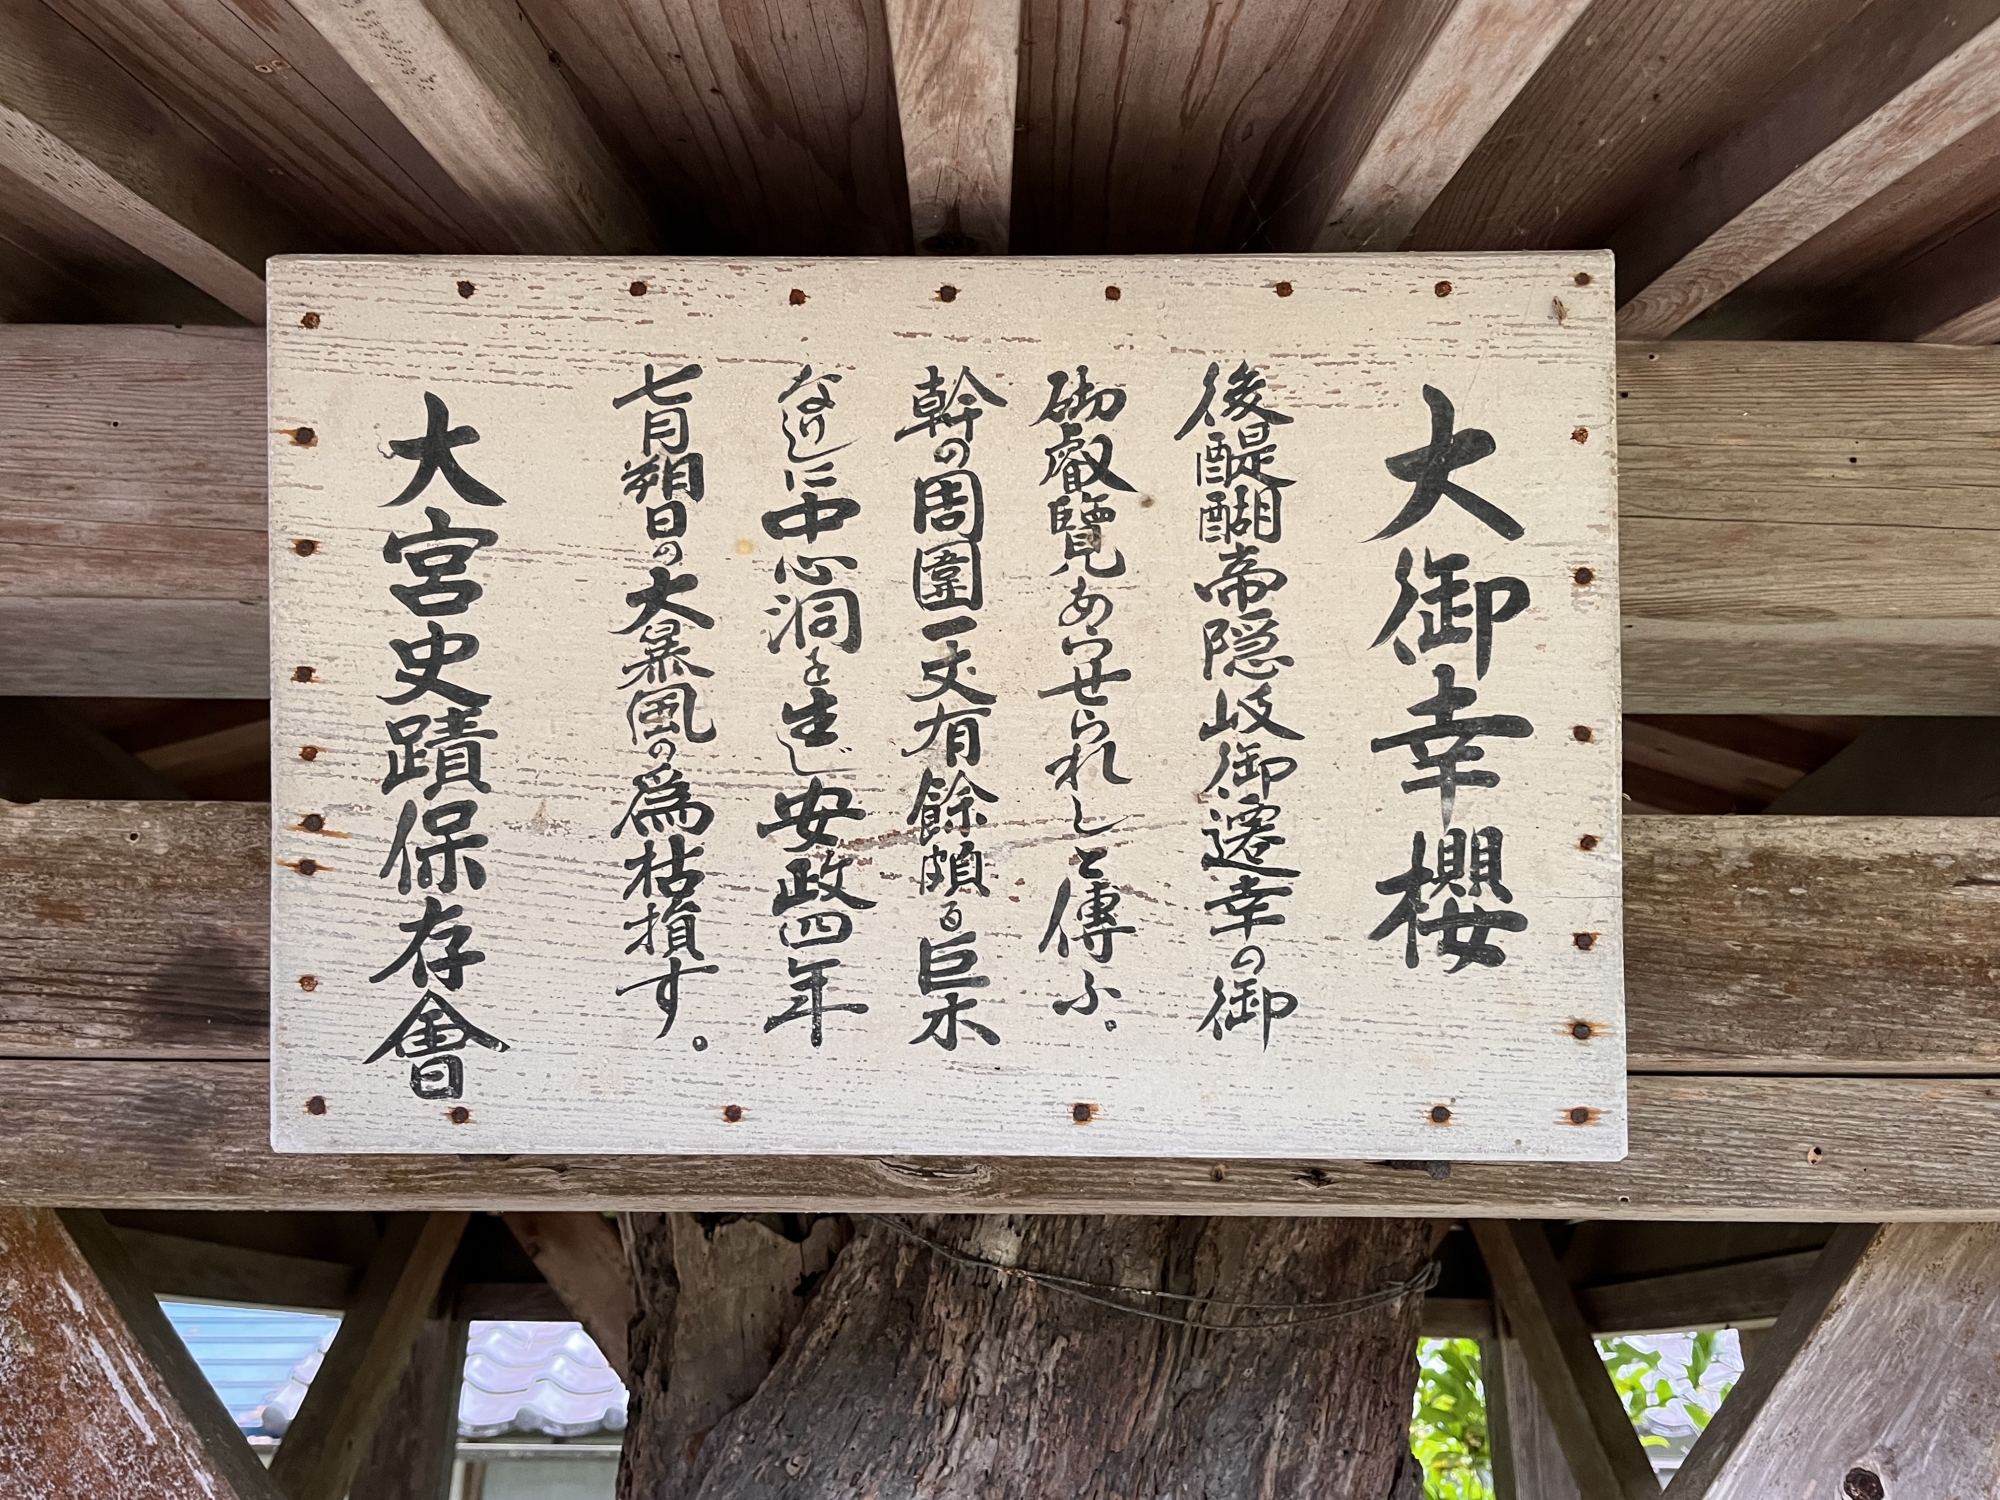 大御幸櫻
後醍醐帝隠岐御遷幸の御
砌叡覧あらせられしと傳ふ。
幹の周圍一丈有餘頗る巨木
なりしに中心洞を生じ安政四年
七月朔日の大暴風の為枯損す。
大宮史蹟保存會